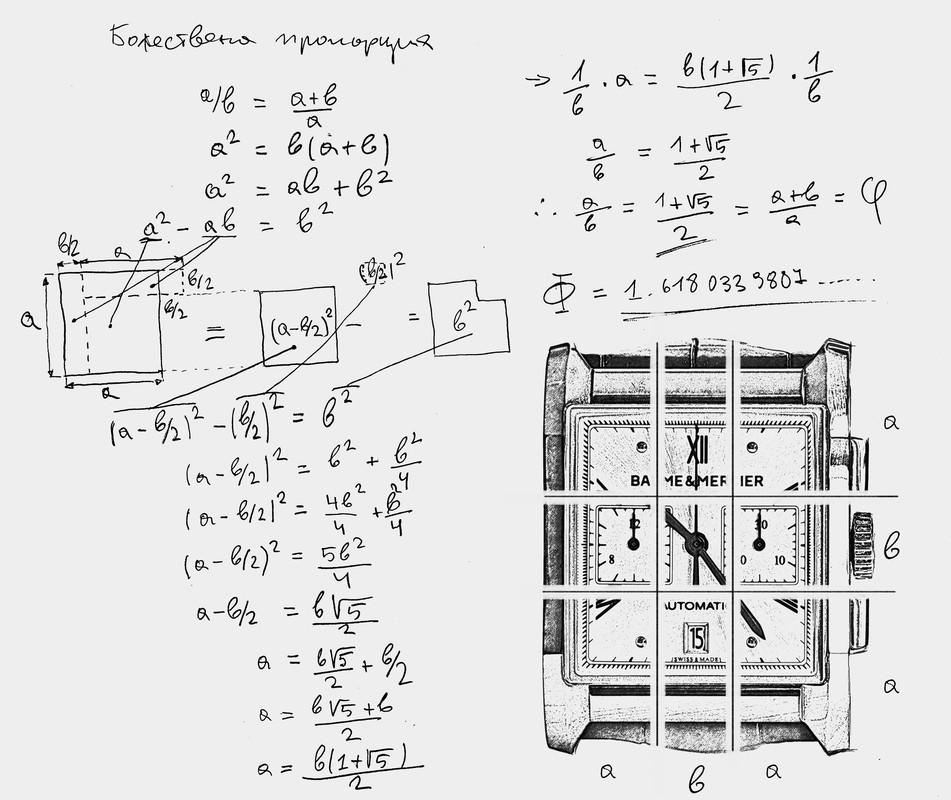 Божествена пропорция
a/b = (a+b)/a
a² = b(a+b)
a² = ab + b²
a² - ab = b²
b/2 a b/2
b/2
a
a
= (a-b/2)² - (b/2)² = b²
(a-b/2)² - (b/2)² = b²
(a-b/2)² = b² + b²/4
(a-b/2)² = 4b²/4 + b²/4
(a-b/2)² = 5b²/4
a-b/2 = b√5/2
a = b√5/2 + b/2
a = (b√5+b)/2
a = b(1+√5)/2
→ 1/b · a = b(1+√5)/2 · 1/b
a/b = (1+√5)/2
∴ a/b = (1+√5)/2 = (a+b)/a = φ
Φ = 1.6180339807......
XII
BAUME & MERCIER
12 30
8 0 10
AUTOMATI
15
SWISS MADE
a
b
a
a b a